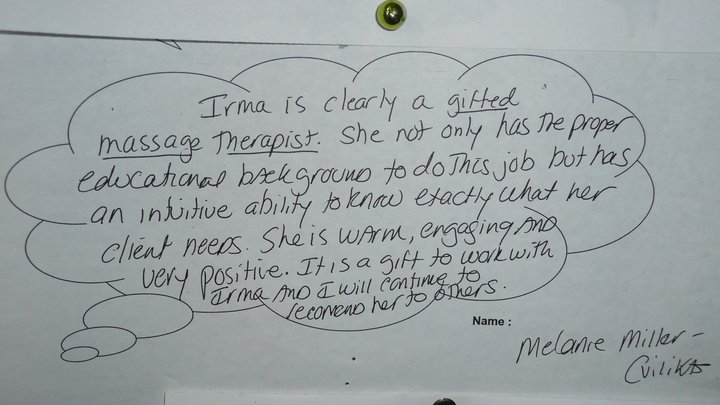 Irma is clearly a gifted
massage Therapist. She not only has the proper
educational background to do this job but has
an intuitive ability to know exactly what her
client needs. She is warm, engaging and
very positive. It is a gift to work with
Irma and I will continue to
recomend her to others.
Name :
Melanie Miller-